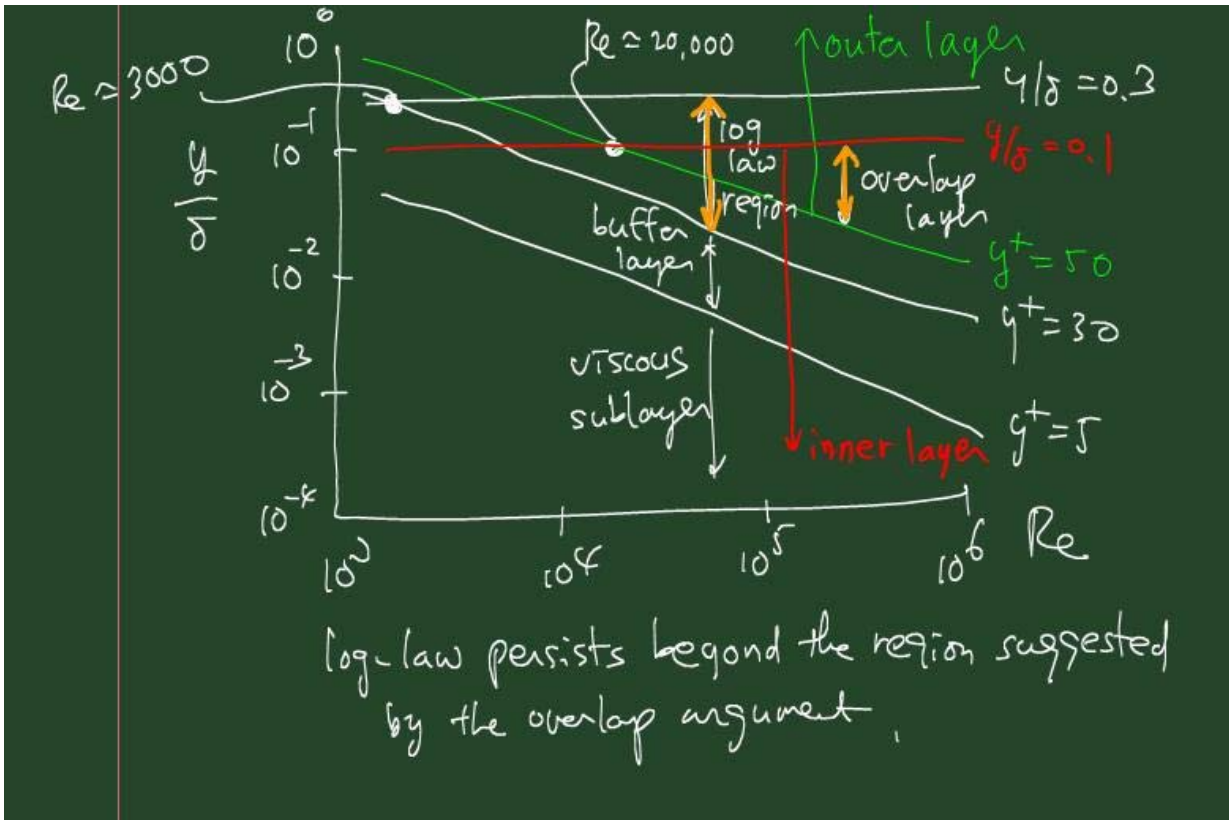 10⁰
Re ≃ 3000
Re ≃ 20,000
outer layer
y/δ = 0.3
10⁻¹
y/δ = 0.1
y/δ
log law region
overlap layer
buffer layer
10⁻²
y⁺ = 50
y⁺ = 30
10⁻³
viscous sublayer
inner layer
y⁺ = 5
10⁻⁴
10³
10⁴
10⁵
10⁶
Re
log-law persists beyond the region suggested
by the overlap argument.